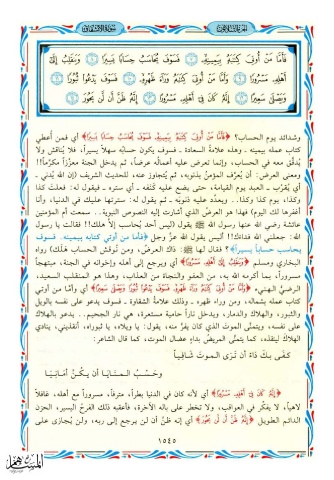 الجزء الثلاثون
سورة الانشقاق
فَأَمَّا مَنْ أُوتِيَ كِتَابَهُ بِيَمِينِهِ ۝ فَسَوْفَ يُحَاسَبُ حِسَابًا يَسِيرًا ۝ وَيَنقَلِبُ إِلَىٰ
أَهْلِهِ مَسْرُورًا ۝ وَأَمَّا مَنْ أُوتِيَ كِتَابَهُ وَرَاءَ ظَهْرِهِ ۝ فَسَوْفَ يَدْعُوا ثُبُورًا ۝
وَيَصْلَىٰ سَعِيرًا ۝ إِنَّهُ كَانَ فِي أَهْلِهِ مَسْرُورًا ۝ إِنَّهُ ظَنَّ أَن لَّن يَحُورَ ۝
وشدائد يوم الحساب؟ ﴿فَأَمَّا مَنْ أُوتِيَ كِتَابَهُ بِيَمِينِهِ فَسَوْفَ يُحَاسَبُ حِسَابًا يَسِيرًا﴾ أي فمن أُعطي
كتاب عمله بيمينه ـ وهذه علامة السعادة ـ فسوف يكون حسابه سهلاً يسيراً، فلا يُناقش ولا
يُدقَّق معه في الحساب، وإنما تعرض عليه أعماله عرضاً، ثم يدخل الجنة معزَّزاً مكرَّماً!!
ومعنى العرض: أن يُعرَّف المؤمنُ بذنوبه، ثم يُتجاوز عنه، للحديث الشريف (إن الله يُدني ـ
أي يُقرِّب ـ العبد يوم القيامة، حتى يضع عليه كَنَفه ـ أي ستره ـ فيقول له: فعلتَ كذا
وكذا، يوم كذا وكذا.. ويعدِّد عليه ذنوبه ـ ثم يقول له: سترتها عليك في الدنيا، وأنا
أغفرها لك اليوم) فهذا هو العرضُ الذي أشارت إليه النصوص النبوية.. سمعت أم المؤمنين
عائشة رضي الله عنها رسول الله ﷺ يقول (ليس أحد يُحاسب إلَّا هلك!! فقالت يا رسول
الله: جعلني الله فداءك!! أليس يقول الله عزَّ وجلَّ ﴿فأما من أوتي كتابه بيمينه، فسوف
يحاسب حساباً يسيراً﴾؟ فقال لها ﷺ: ذاك العرضُ، ومن نُوقش الحساب هَلَك) رواه
البخاري ومسلم ﴿وَيَنقَلِبُ إِلَىٰ أَهْلِهِ مَسْرُورًا﴾ أي ويرجع إلى أهله وإخوانه في الجنة، مبتهجاً
مسروراً، بما أكرمه الله به، من العفو والنجاة من العذاب، وهذا هو المنقلب السعيد،
الرضيُّ الهنيء ﴿وَأَمَّا مَنْ أُوتِيَ كِتَابَهُ وَرَاءَ ظَهْرِهِ فَسَوْفَ يَدْعُوا ثُبُورًا وَيَصْلَىٰ سَعِيرًا﴾ أي وأمَّا من أُوتي
كتاب عمله بشماله، ومن وراء ظهره ـ وذلك علامةُ الشقاوة ـ فسوف يدعو على نفسه بالويل
والثبور، والهلاك والدمار، ويدخل ناراً حامية مستعرة، هي نار الجحيم.. يدعو بالهلاك
على نفسه، ويتمنَّى الموت الذي كان يفرُّ منه، يقول: يا ويلاه، يا ثبوراه، أنقذيني، ينادي
الهلاك لينقذه، كما يتمنَّى المريضُ بداءٍ عضال الموت، كما قال الشاعر:
كَفَى بِكَ دَاءً أن تَرَى المَوتَ شَافِيَاً
وَحَسْبُ المَنَايَا أن يَكُنَّ أَمَانِيَا
﴿إِنَّهُ كَانَ فِي أَهْلِهِ مَسْرُورًا﴾ أي لأنه كان في الدنيا بطراً، مترفاً، مسروراً مع أهله، غافلاً
لاهياً، لا يفكِّر في العواقب، ولا تخطر على باله الآخرة، فأعقبه ذلك الفرحُ اليسير، الحزن
الدائم الطويل ﴿إِنَّهُ ظَنَّ أَن لَّن يَحُورَ﴾ أي إنه ظنَّ أن لن يرجع إلى ربه، ولن يُجازى على
١٥٤٥